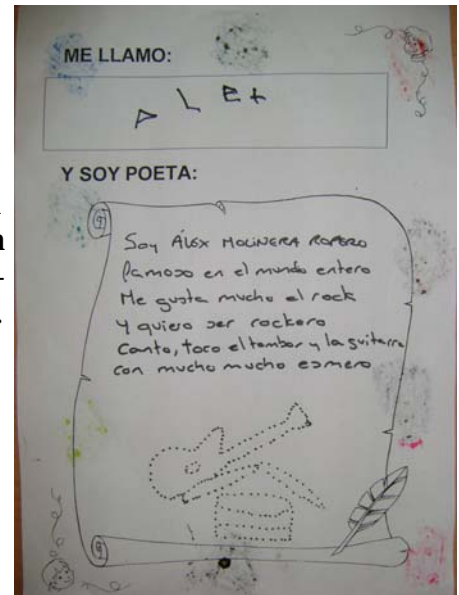 ME LLAMO:
ALEX
Y SOY POETA:
Soy ÁLEX MOLINERA ROPERO
famoso en el mundo entero
Me gusta mucho el rock
y quiero ser rockero
Canto, toco el tambor y la guitarra
con mucho mucho esmero